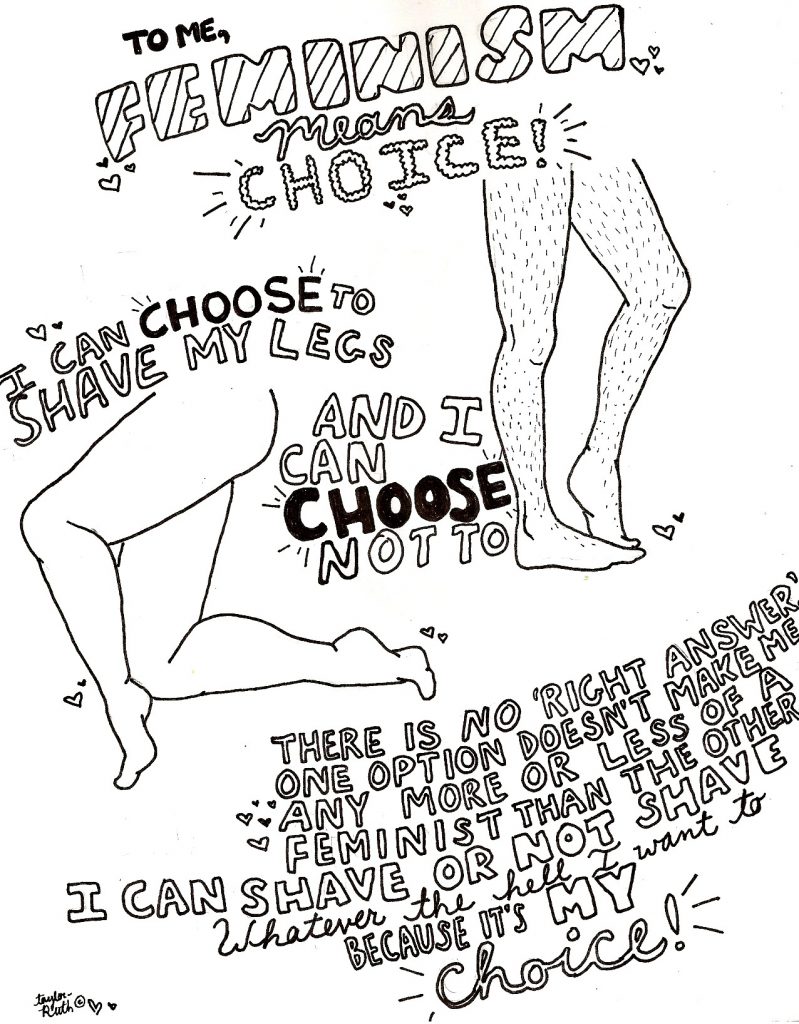 TO ME,
FEMINISM
means
CHOICE!
I CAN CHOOSE TO
SHAVE MY LEGS
AND I
CAN
CHOOSE
NOT TO
THERE IS NO 'RIGHT ANSWER'
ONE OPTION DOESN'T MAKE ME
ANY MORE OR LESS OF A
FEMINIST THAN THE OTHER
I CAN SHAVE OR NOT SHAVE
Whatever the hell I want to
BECAUSE IT'S MY
choice!
taylor-
Ruth ©